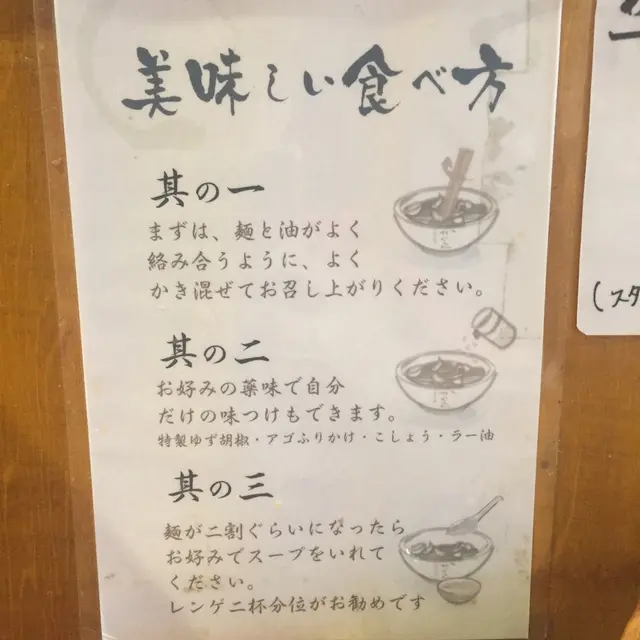 美味しい食べ方
其の一
まずは、麺と油がよく
絡み合うように、よく
かき混ぜてお召し上がりください。
其の二
お好みの薬味で自分
だけの味つけもできます。
特製ゆず胡椒・アゴふりかけ・こしょう・ラー油
其の三
麺が二割ぐらいになったら
お好みでスープをいれて
ください。
レンゲ二杯分位がお勧めです
(スタ